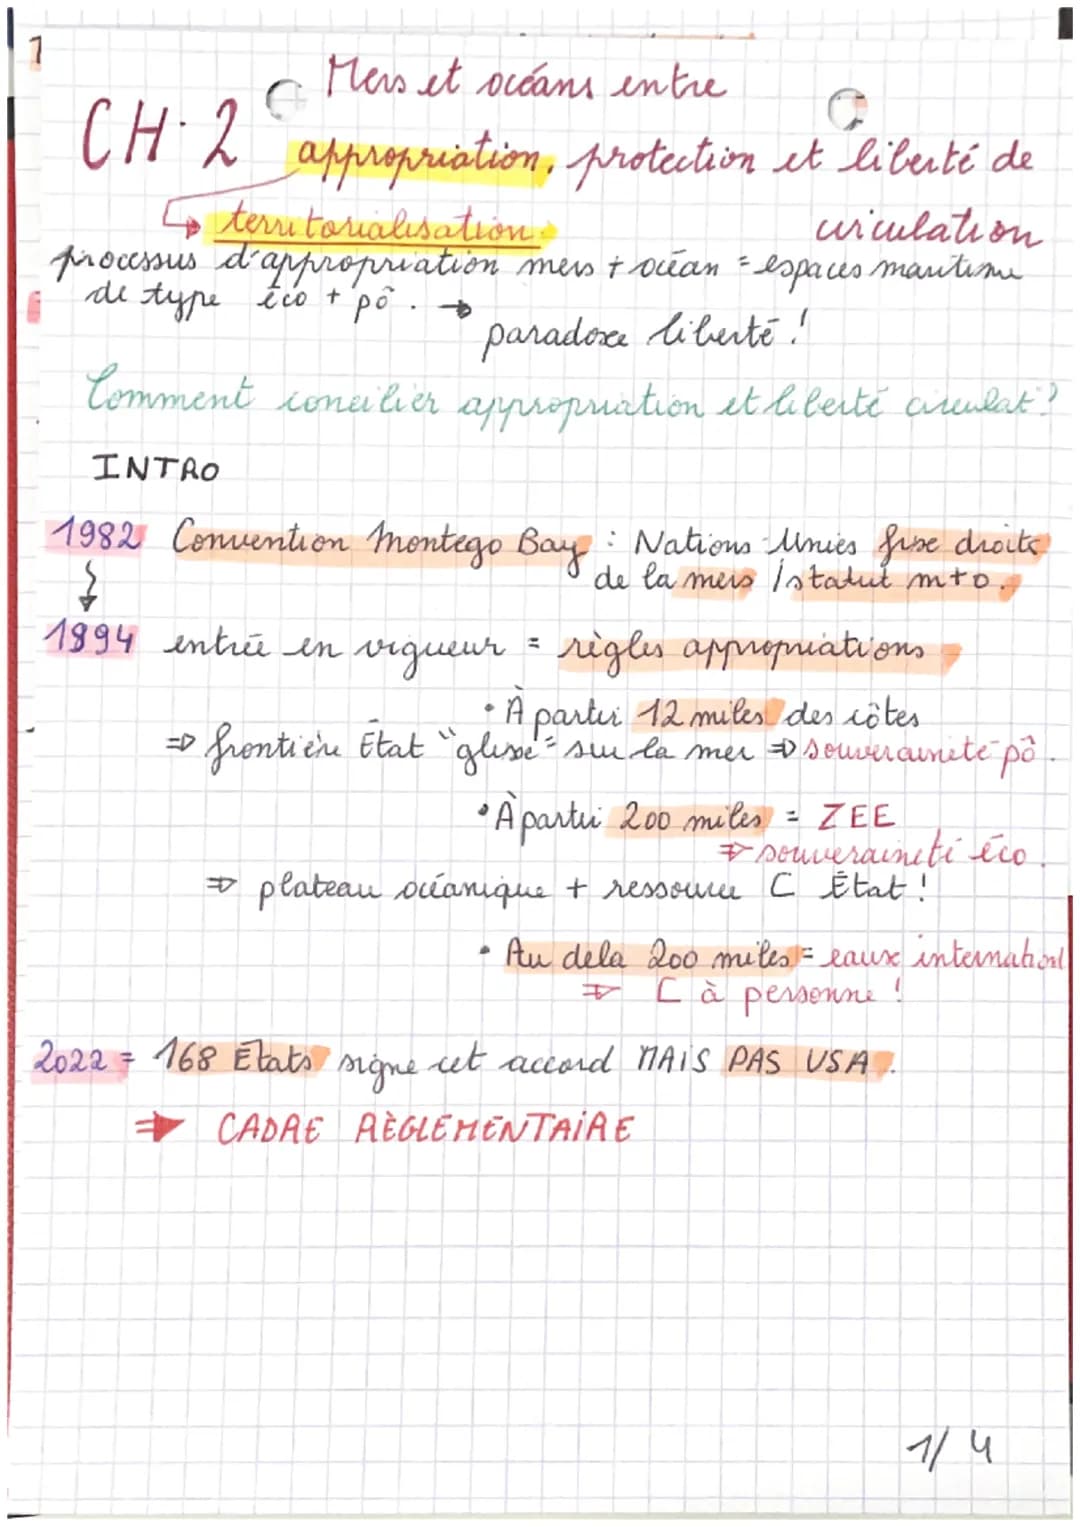 1
Mers et océans entre
CH. 2 appropriation, protection et liberté de
↳ territorialisation. circulation
processus d'appropriation mers + océan = espaces maritime
de type éco + pô. →
paradoxe liberté !
Comment concilier appropriation et liberté circulat°?
INTRO
1982 Convention Montego Bay : Nations Unies fixe droits
de la mers / statut m+o.
1994 entrée en vigueur = règles appropriations
• À partir 12 miles des côtes
⇒ frontière État "glisse" sur la mer ⇒ souveraineté pô.
• À partir 200 miles = ZEE
⇒ souveraineté éco.
⇒ plateau océanique + ressource C État !
• Au dela 200 miles = eaux international
⇒ C à personne !
2022 = 168 États signe cet accord MAIS PAS USA.
⇒ CADRE RÈGLEMENTAIRE
1/4